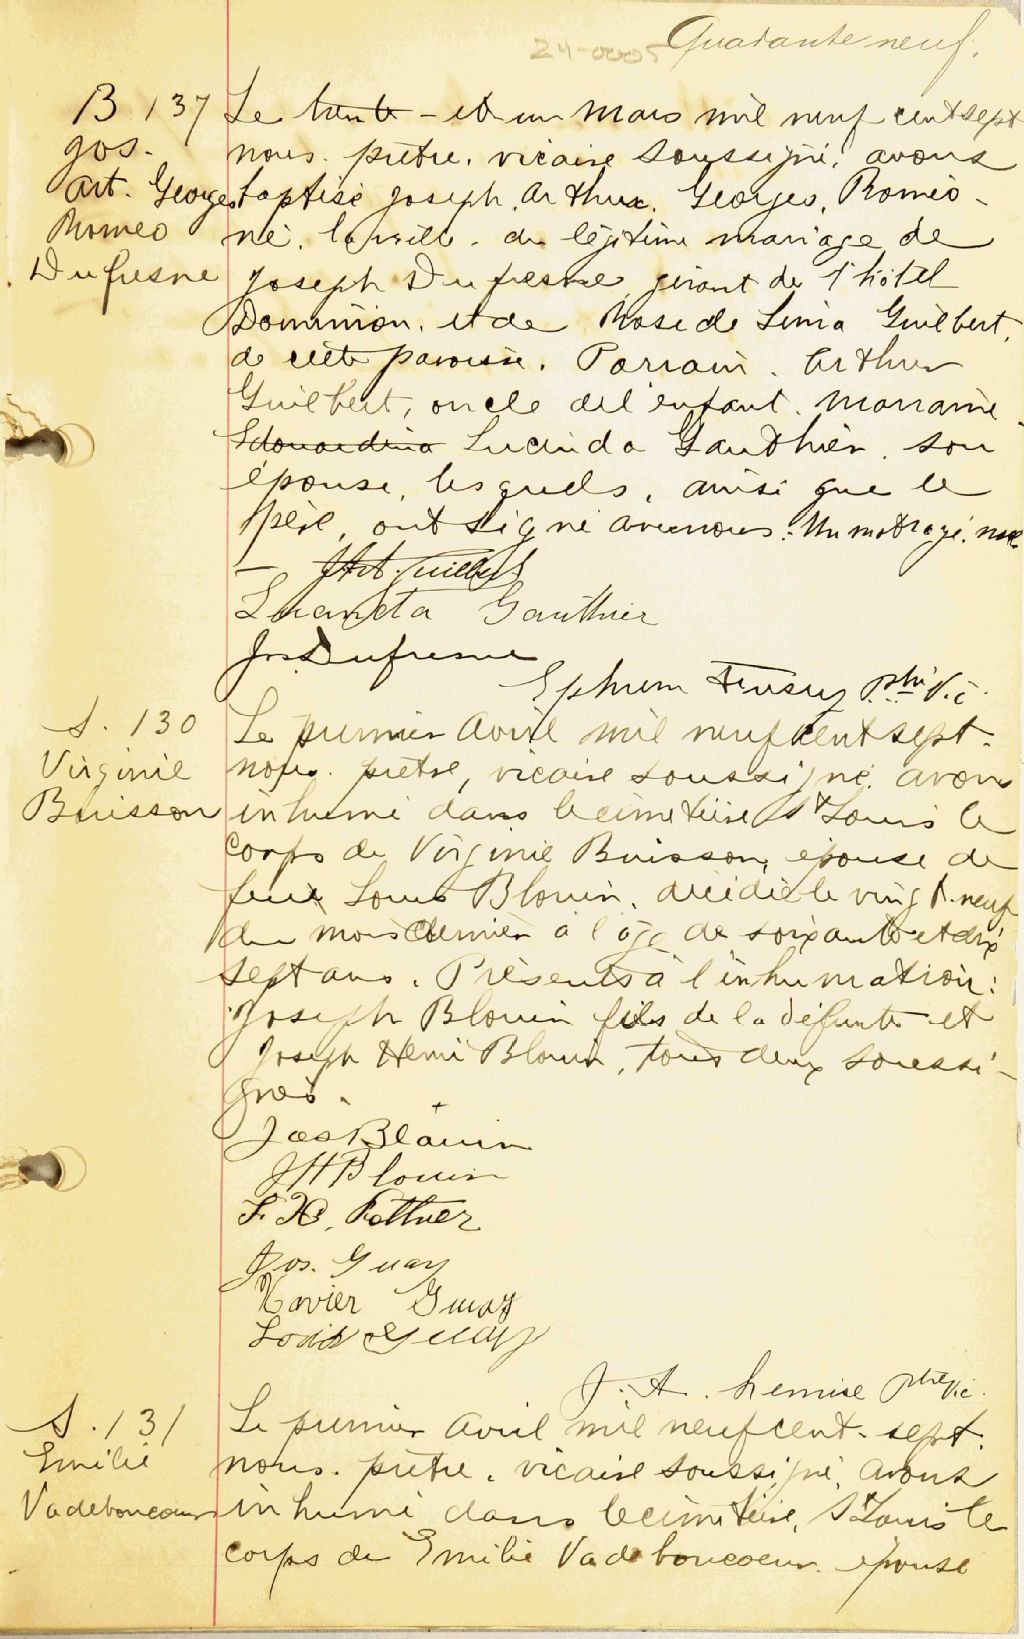 24-0005
Quarante neuf.
B 137
Jos.
Art. Georges
Romeo
Dufresne
Le trente - et un mars mil neuf cent sept
nous. prêtre, vicaire soussigné, avons
baptisé Joseph, Arthur, Georges, Roméo -
né, la veille, du légitime mariage de
Joseph Dufresne gérant de l'hôtel
Dominion, et de Rose de Lima Guilbert,
de cette paroisse. Parrain. Arthur
Guilbert, oncle de l'enfant. Marraine
Edouardina Lucinda Gauthier, son
épouse, lesquels, ainsi que le
père, ont signé avec nous. Un mot rayé. nul
J Art. Guilbert
Lucinda Gauthier
Jos Dufresne
Ephrem ptre Vic.
S. 130
Virginie
Buisson
Le premier avril mil neuf cent sept -
nous. prêtre, vicaire soussigné, avons
inhumé dans le cimetière St Louis le
corps de Virginie Buisson, épouse de
feu Louis Blouin, décédée le vingt-neuf
du mois dernier à l'âge de soixante et dix
sept ans. Présents à l'inhumation:
Joseph Blouin fils de la défunte et
Joseph Henri Blouin, tous deux soussi-
gnés.
Jos Blouin
J H Blouin
F. X. Pothier
Jos. Guay
Xavier Guay
Louis Guay
J. A. Lemire ptre Vic.
S. 131
Emilie
Vadeboncoeur
Le premier avril mil neuf cent - sept.
nous. prêtre, vicaire soussigné, avons
inhumé dans le cimetière, St Louis le
corps de Emilie Vadeboncoeur. épouse